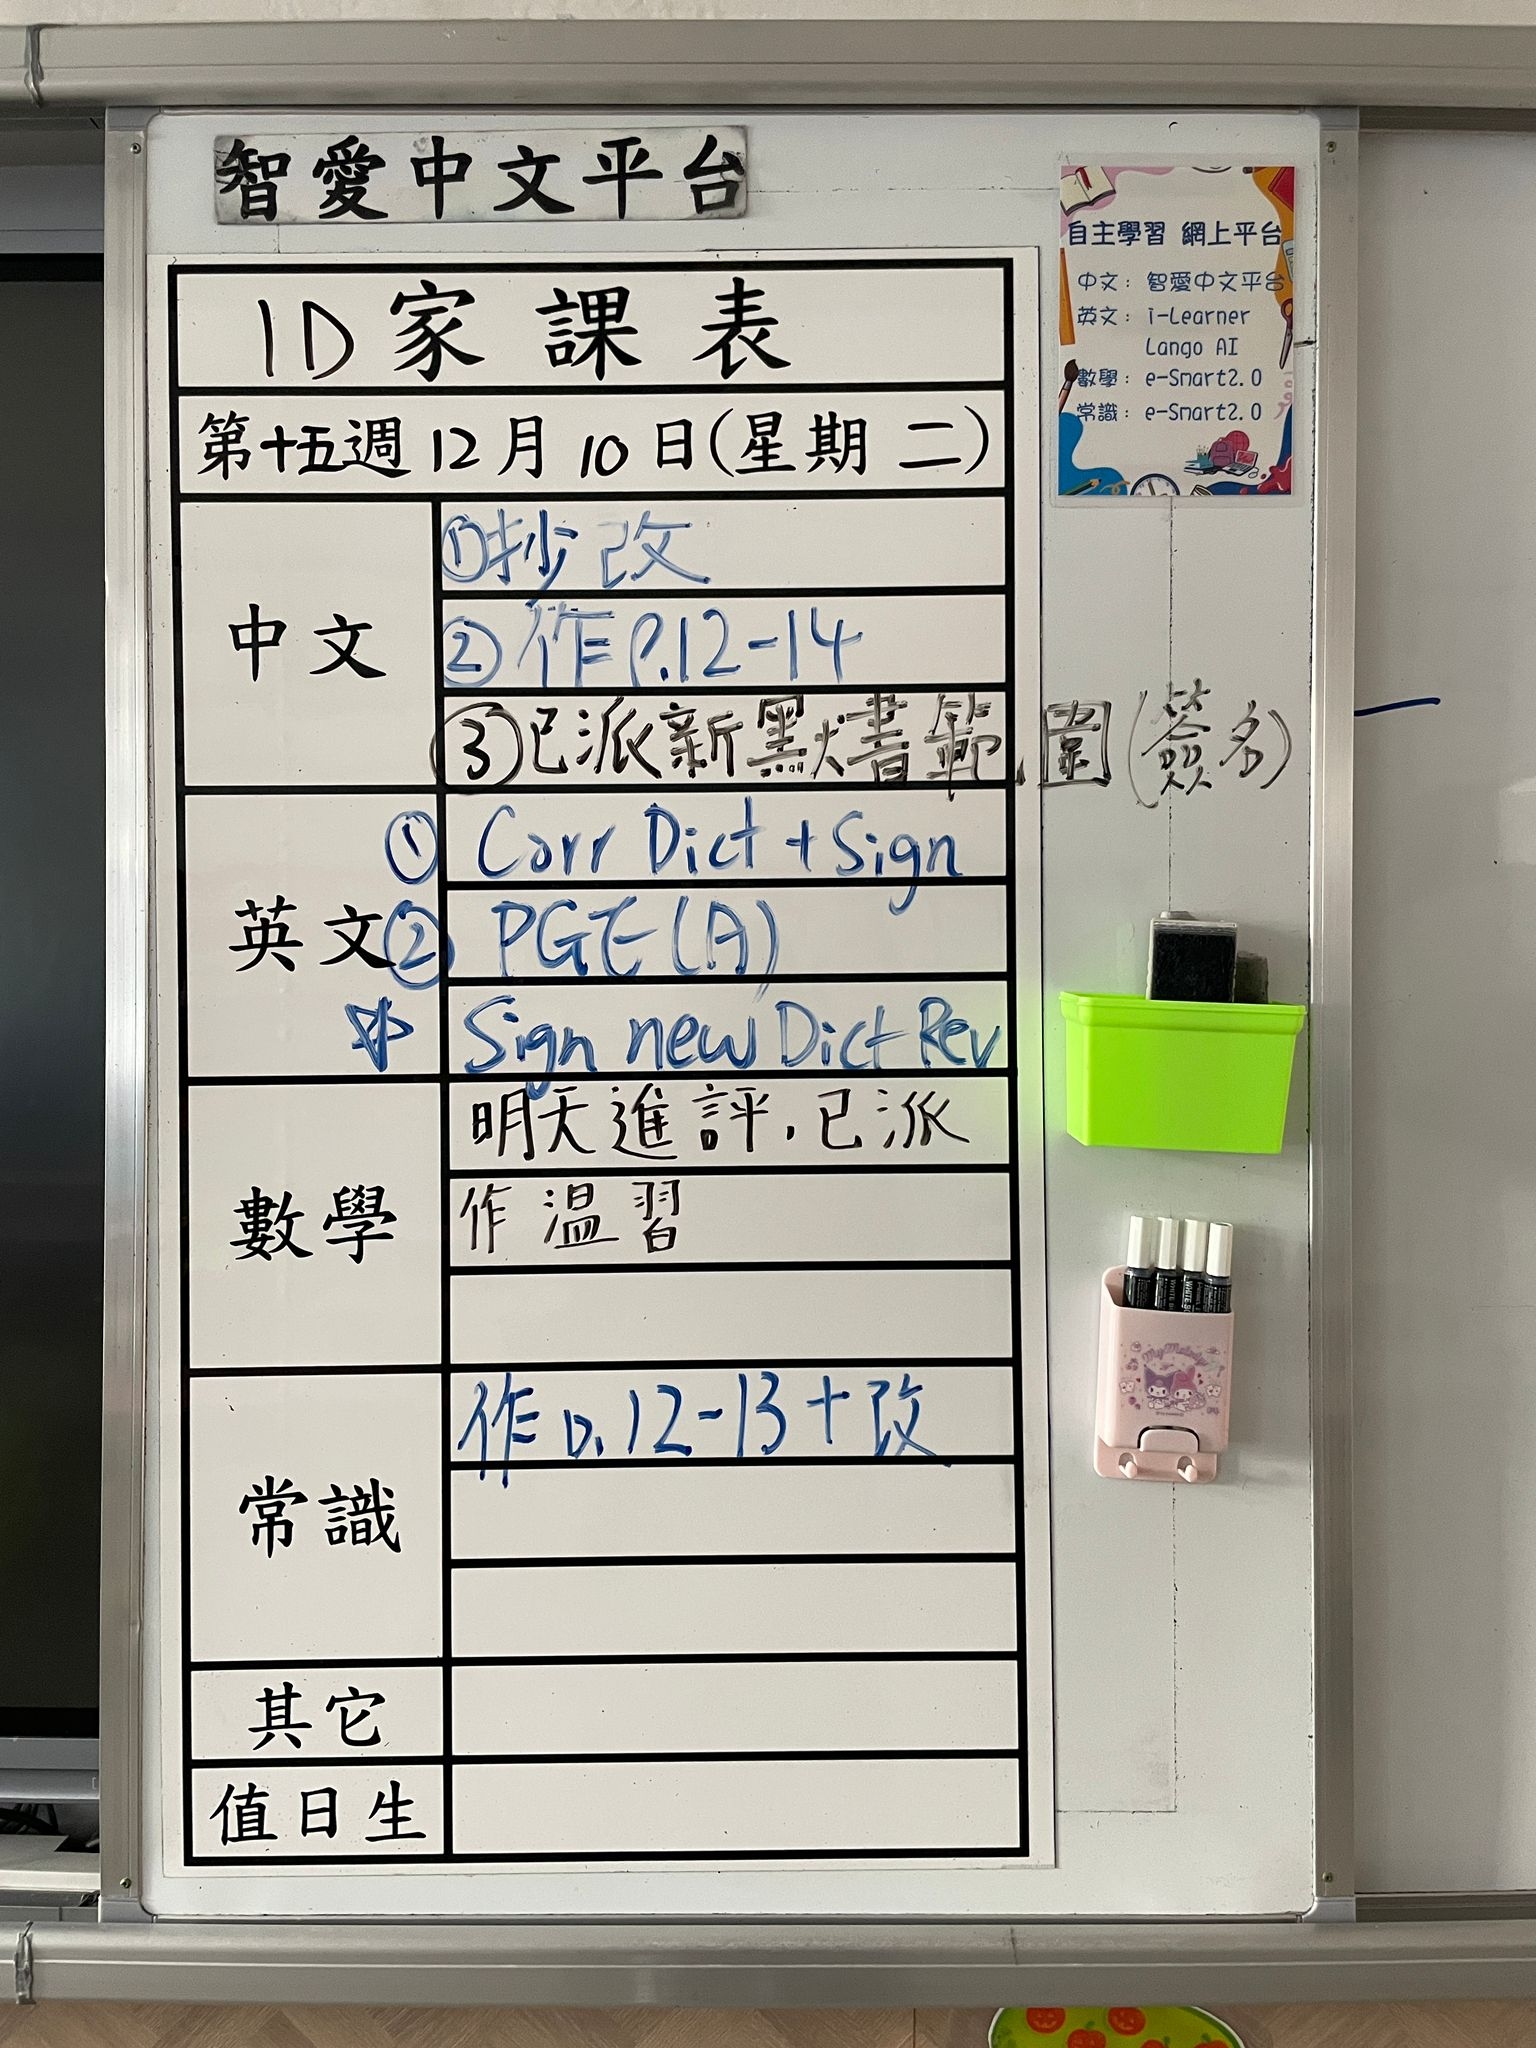 智愛中文平台
1D家課表
第十五週12月10日(星期二)
中文
①抄改
②作P.12-14
③已派新默書範圍(簽名)
英文
① Corr Dict + Sign
② PGE(A)
☆ Sign new Dict Rev
數學
明天進評,已派
作溫習
常識
作p.12-13+改
其它
值日生
自主學習 網上平台
中文:智愛中文平台
英文:i-Learner
Lango AI
數學:e-Smart2.0
常識:e-Smart2.0
My Melody